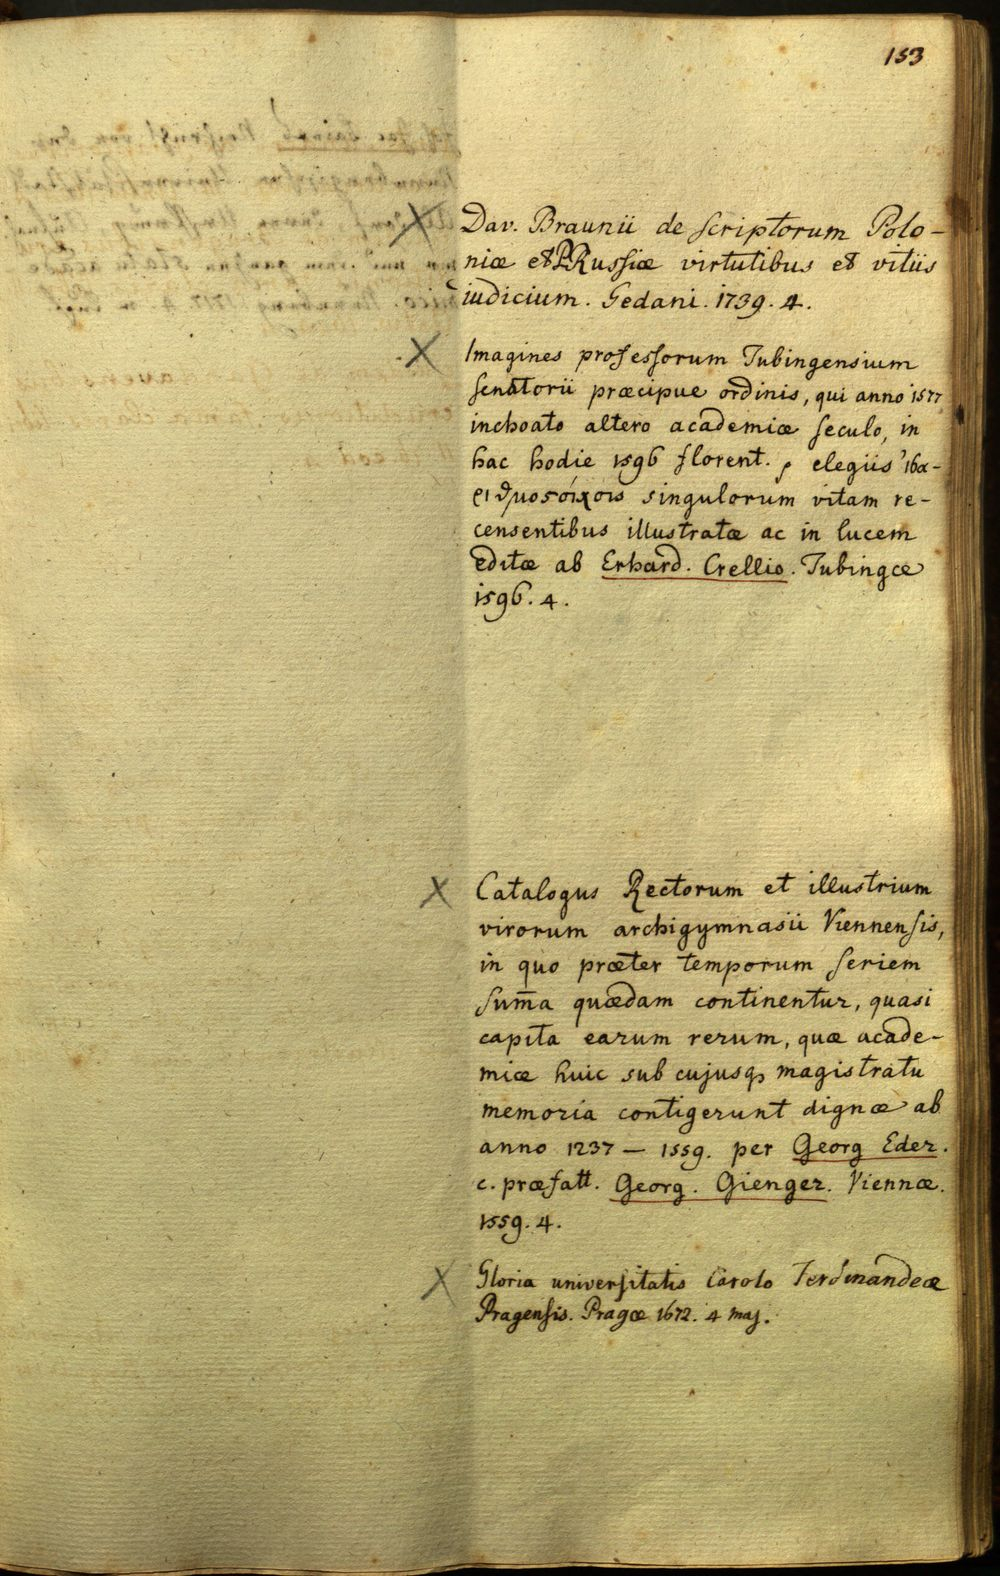 153
Dav. Braunii de scriptorum Polo-
niæ et PRussiæ virtutibus et vitiis
iudicium. Gedani. 1739. 4.
Imagines professorum Tubingensium
senatorii præcipue ordinis, qui anno 1577
inchoato altero academiæ seculo, in
hac hodie 1596 florent. elegiis
singulorum vitam re-
censentibus illustratæ ac in lucem
editæ ab Erhard. Crellio. Tubingæ
1596. 4.
Catalogus Rectorum et illustrium
virorum archigymnasii Viennensis,
in quo præter temporum seriem
sum̄a quædam continentur, quasi
capita earum rerum, quæ acade-
miæ huic sub cujusq magistratu
memoria contigerunt dignæ ab
anno 1237 — 1559. per Georg Eder.
c. præfatt. Georg. Gienger. Viennæ.
1559. 4.
Gloria universitatis Carolo Ferdinandeæ
Pragensis. Pragæ 1672. 4 maj.